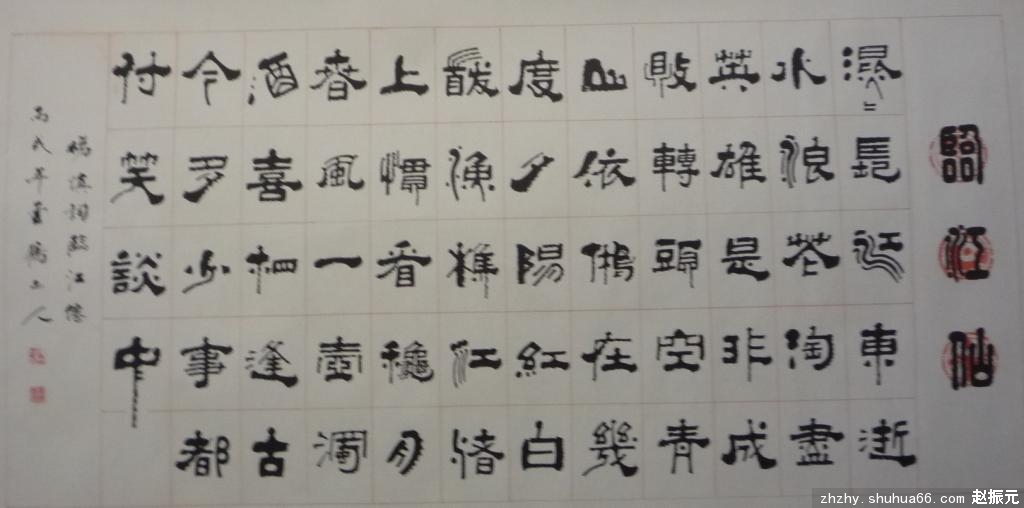 臨江仙
滾〻長江東逝
水浪花淘盡
英雄是非成
敗轉頭空青
山依舊在幾
度夕陽紅白
髮漁樵江渚
上慣看穐月
春風一壺濁
酒喜相逢古
今多少事都
付笑談中
楊慎詞臨江僊
丙戌年
zhzhy.shuhua66.com 赵振元